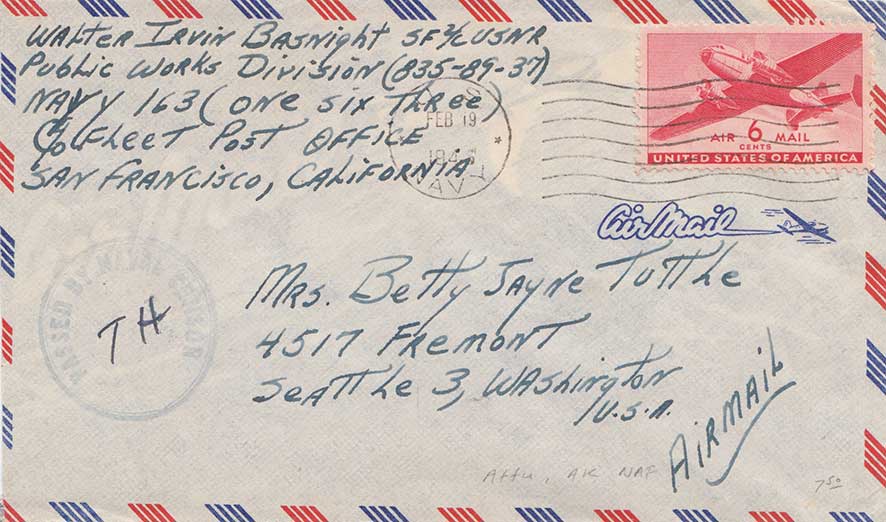 Walter Irvin Basnight SF 2/c USNR
Public Works Division (835-89-37)
Navy 163 (one six three)
c/o Fleet Post Office
San Francisco, California
U.S.
FEB 19
NAVY
AIR 6 MAIL
CENTS
UNITED STATES OF AMERICA
Air Mail
PASSED BY NAVAL CENSOR
TH
Mrs. Betty Jayne Tuttle
4517 Fremont
Seattle 3, Washington
U.S.A.
AIRMAIL
Attu, AK NAF
7 50